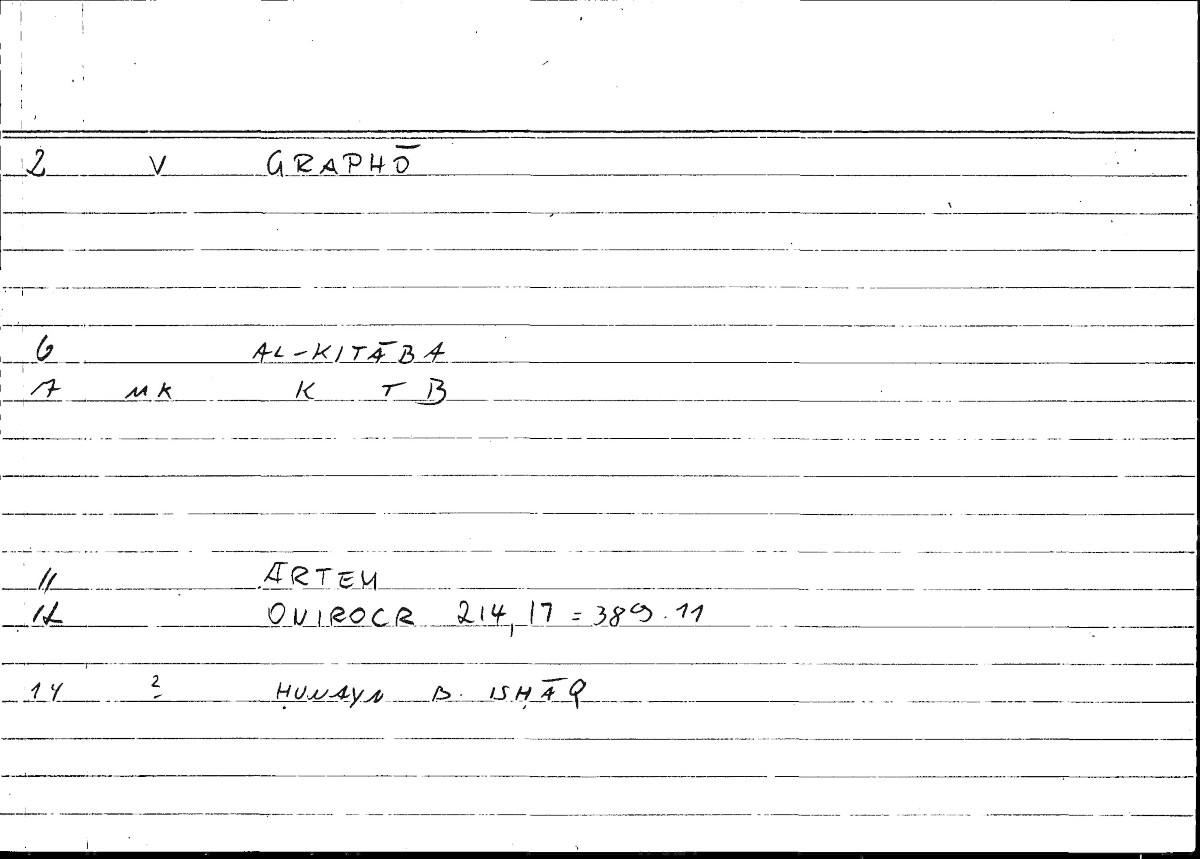 2 V GRAPHŌ
6 AL-KITĀBA
7 MK K T B
11 ARTEM
12 ONIROCR 214,17 = 389.11
14 2 ḤUNAYN B. ISḤĀQ